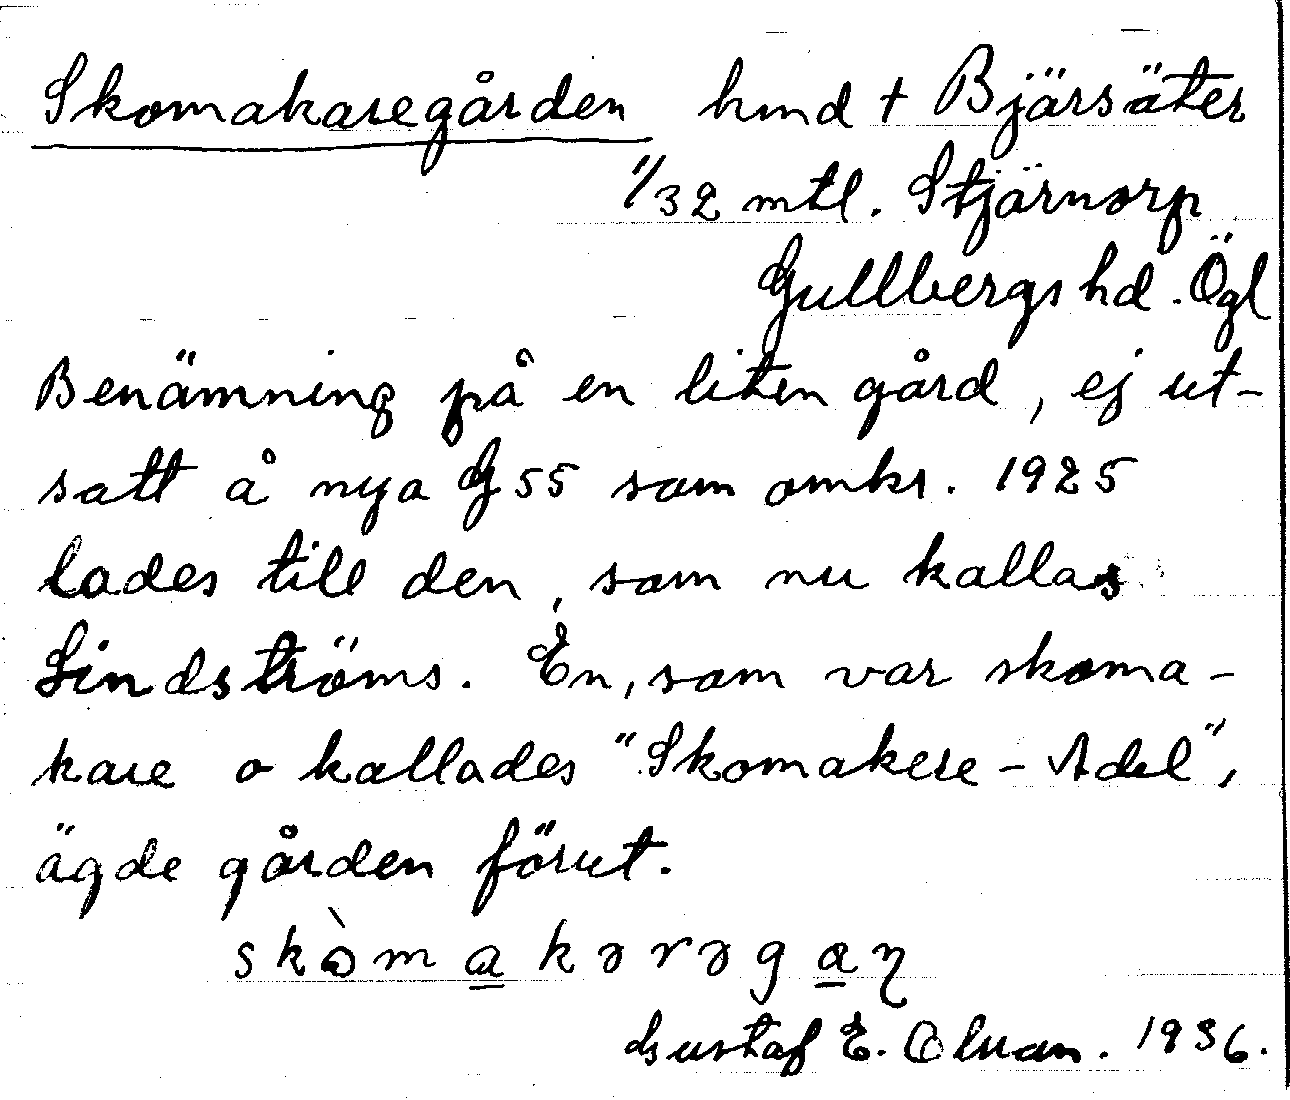 Skomakaregården hmd t Bjärsäter
1/32 mtl. Stjärnorp
Gullbergs hd. Ögl
Benämning på en liten gård, ej ut-
satt å nya G55 som omkr. 1925
lades till den, som nu kallas
Lindströms. En, som var skoma-
kare o kallades "Skomakere-Adel",
ägde gården förut.
skòmakərəgaɳ
Gustaf E. 1936.